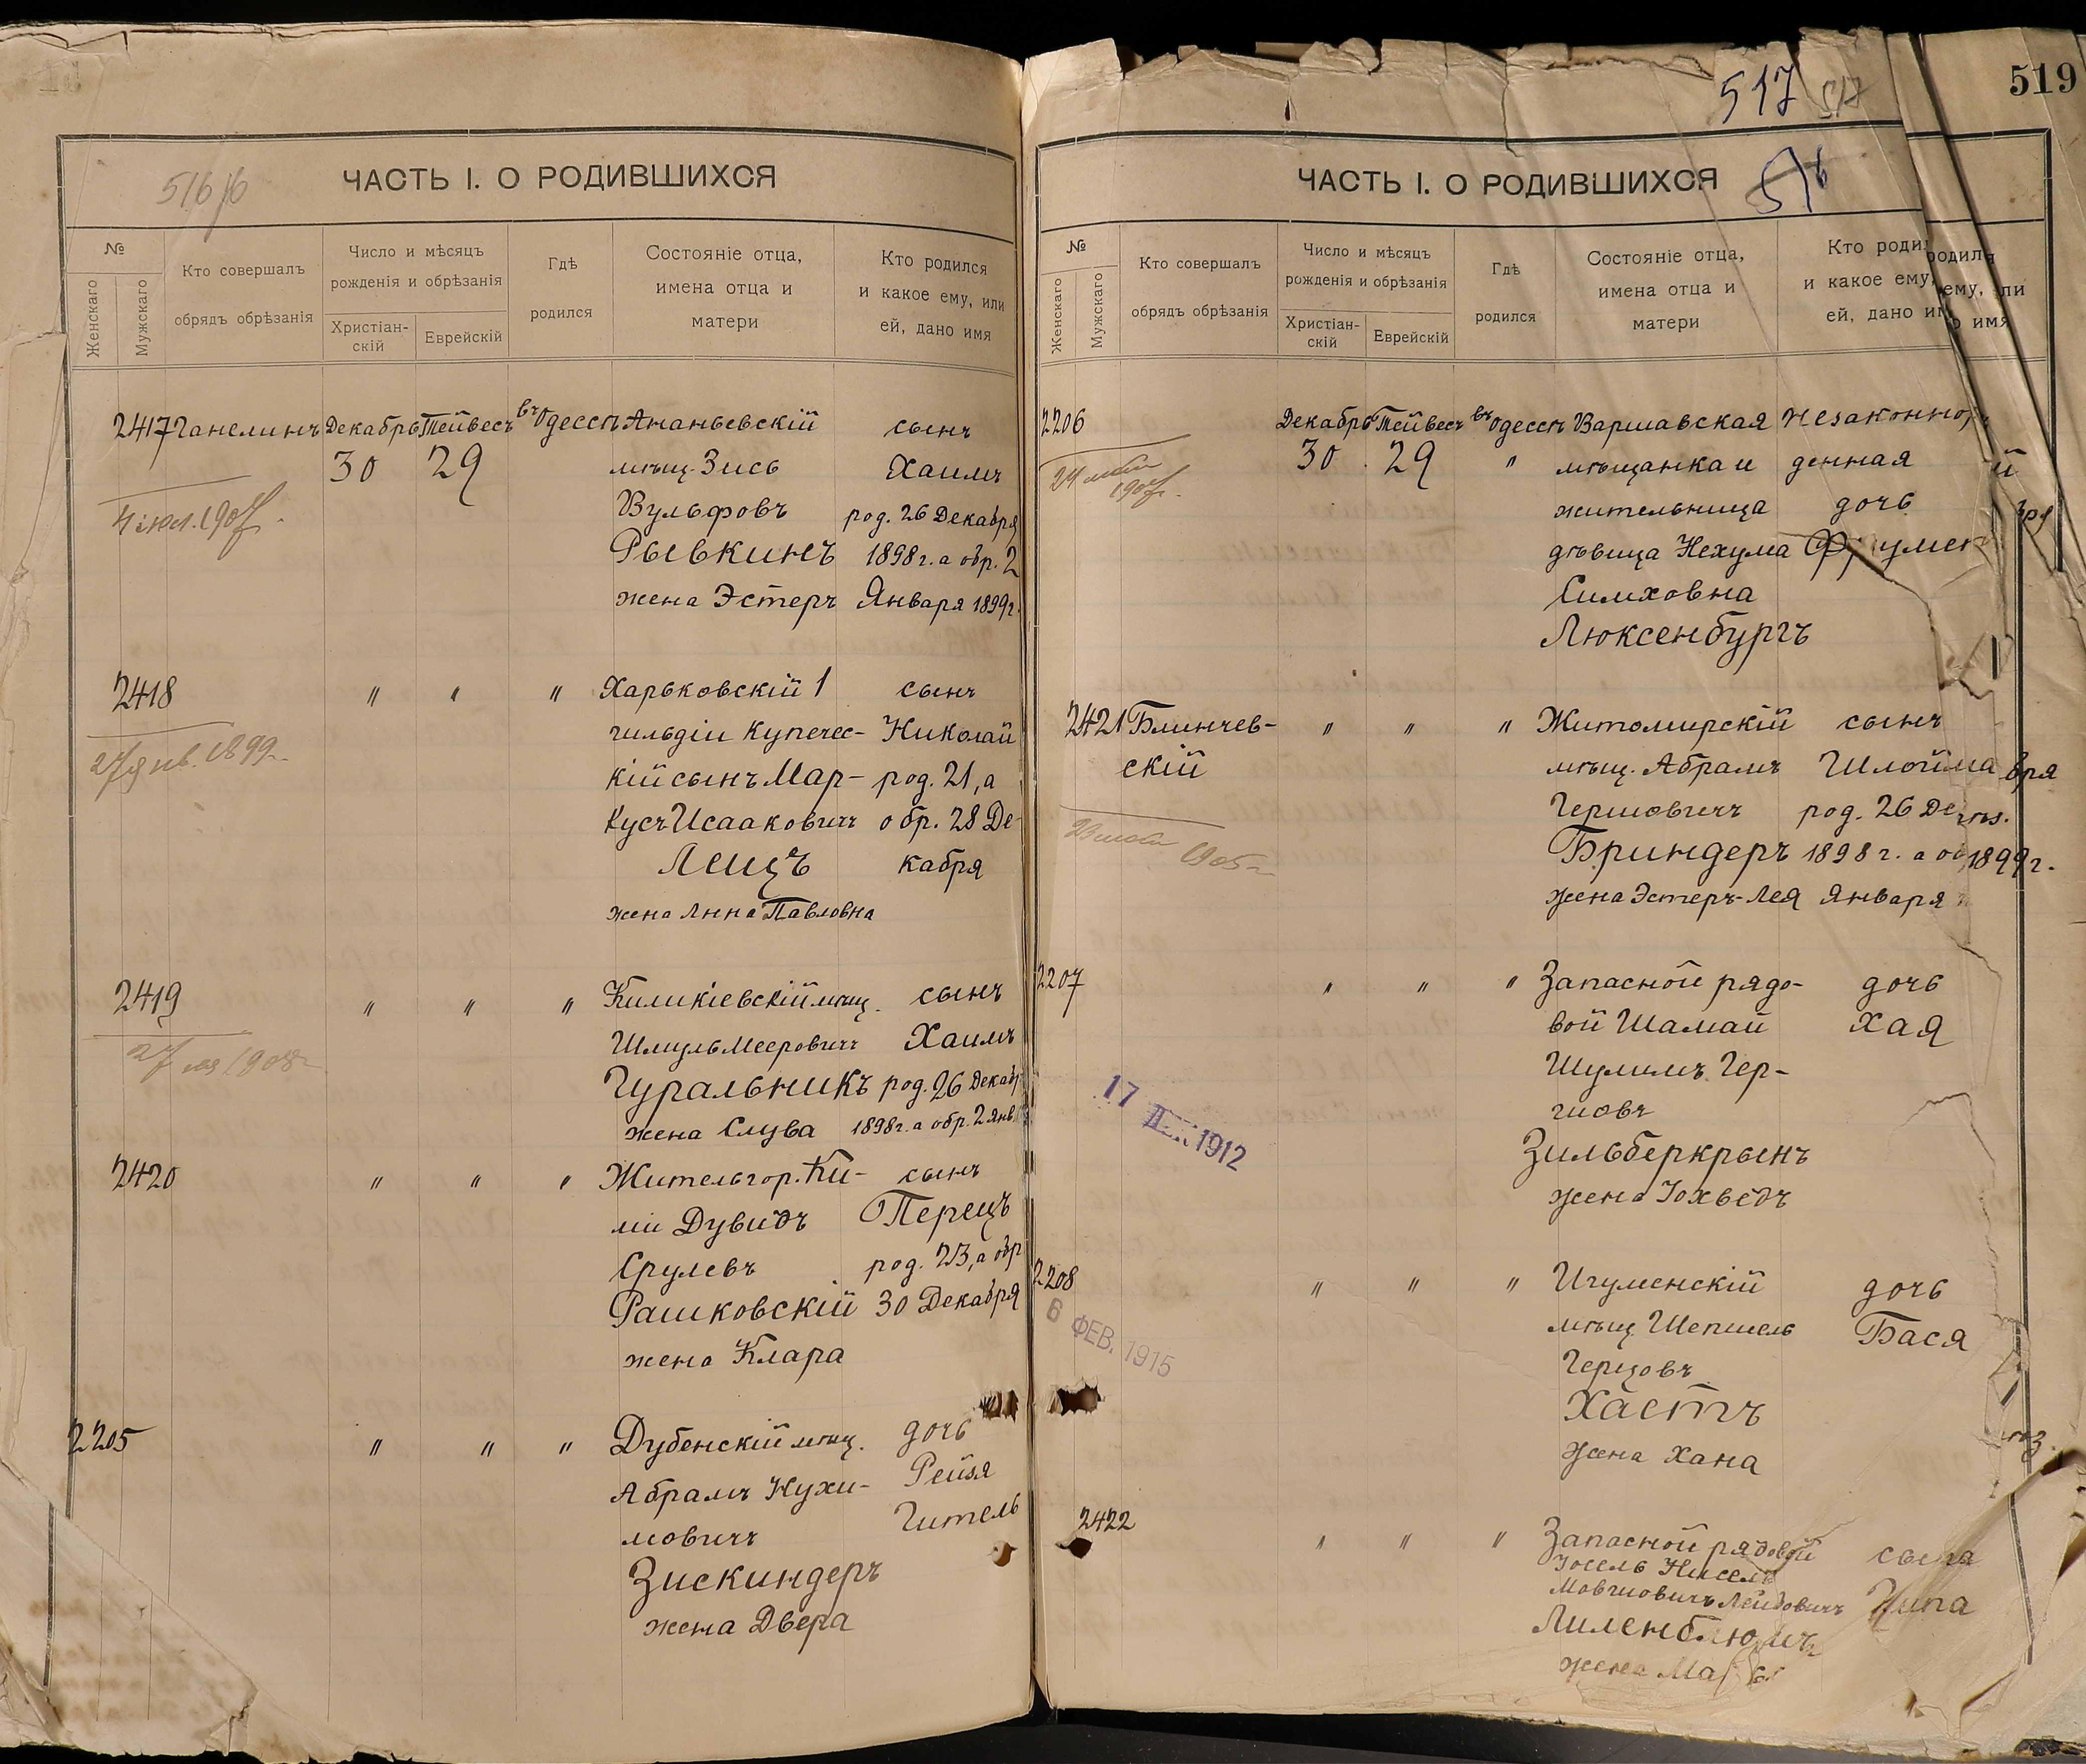 516 16
ЧАСТЬ I. О РОДИВШИХСЯ
№
Женскаго
Мужскаго
Кто совершалъ
обрядъ обрѣзанія
Число и мѣсяцъ
рожденія и обрѣзанія
Христіан-
скій
Еврейскій
Гдѣ
родился
Состояніе отца,
имена отца и
матери
Кто родился
и какое ему, или
ей, дано имя
2417 Ганелинъ Декабрь Тейвесъ въ Одессѣ Ананьевскій сынъ
30 29 мѣщ. Зись Хаимъ
Вульфовъ род. 26 Декабря
Рывкинъ 1898 г. а обр. 2
жена Эстеръ Января 1899 г.
2418 " " " Харьковскій 1 сынъ
гильдіи Купечес- Николай
27 янв. 1899
кій сынъ Мар- род. 21, а
кусъ Исааковичъ обр. 28 Де-
Лещъ кабря
жена Анна Павловна
2419 " " " Киликіевскій мѣщ. сынъ
Шмуль Мееровичъ Хаимъ
Гуральникъ род. 26 Декабр
жена Слува 1898 г. а обр. 2 янв.
2420 " " " Житель гор. Ки- сынъ
ліи Дувидъ Перецъ
Срулевъ род. 23, а обр
Рашковскій 30 Декабря
жена Клара
2205 " " " Дубенскій мѣщ. дочь
Абрамъ Нухи- Рейзя
мовичъ Гитель
Зискиндеръ
жена Двера
517 517
519
ЧАСТЬ I. О РОДИВШИХСЯ
№
Женскаго
Мужскаго
Кто совершалъ
обрядъ обрѣзанія
Число и мѣсяцъ
рожденія и обрѣзанія
Христіан-
скій
Еврейскій
Гдѣ
родился
Состояніе отца,
имена отца и
матери
Кто роди
и какое ему,
ей, дано и
одился
ему, или
имя
2206 Декабрь Тейвесъ въ Одессѣ Варшавская незаконнор
30 29 " мѣщанка и денная
жительница дочь
дѣвица Нехума
Симховна
Люксенбургъ
2421 Блинчев- " " " Житомирскій сынъ
скій мѣщ. Абрамъ Шлойма бря
Гершовичъ род. 26 Де
Бриндеръ 1898 г. а об 1899 г.
жена Эстеръ-Лея Января
2207 " " " Запасной рядо- дочь
вой Шамай Хая
Шулимъ Гер-
шовъ
17 ДЕК 1912
Зильберкрынъ
жена Іохведъ
2208 " " " Игуменскій дочь
6 ФЕВ. 1915
мѣщ. Шепшель Бася
Герцовъ
Хастъ
жена Хана
2422 " " " Запасной рядовой сынъ
Іосель Нисель
Мовшовичъ Лейбовичъ
Лиленблюмъ
жена